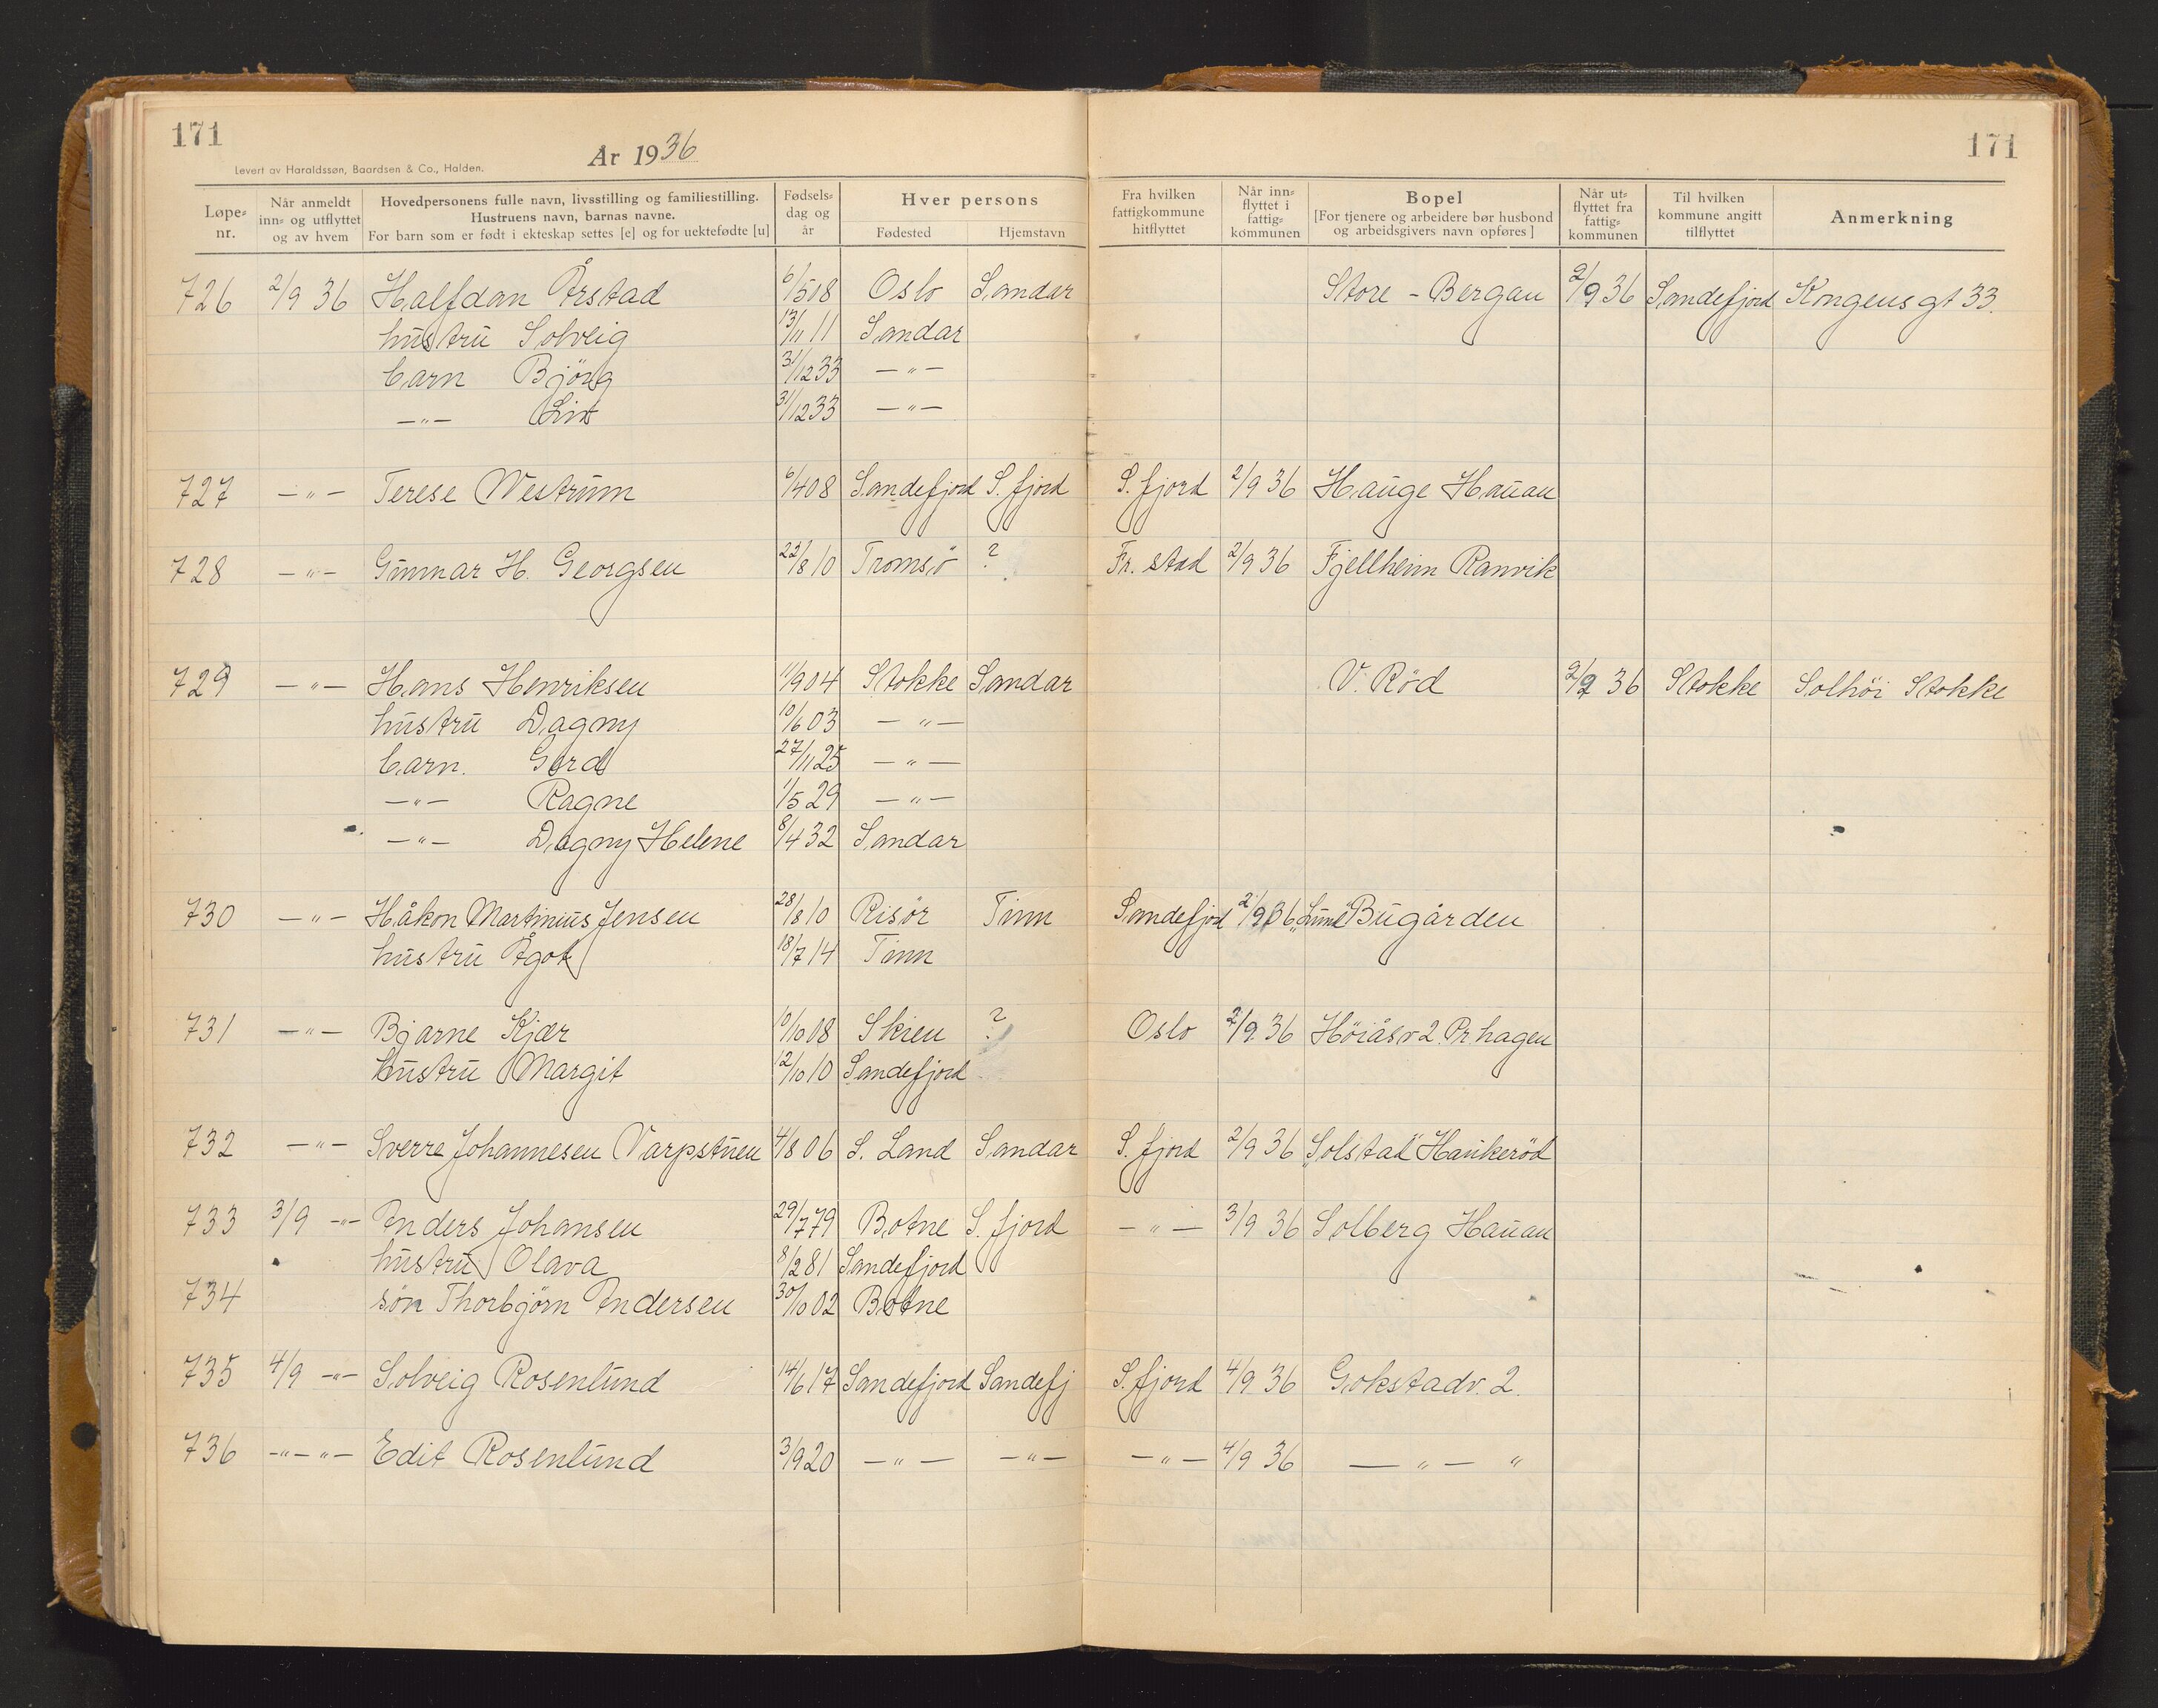 171
171
År 1936
Levert av Haraldssøn, Baardsen & Co., Halden.
Løpe-nr.
Når anmeldt inn- og utflyttet og av hvem
Hovedpersonens fulle navn, livsstilling og familiestilling. Hustruens navn, barnas navne. For barn som er født i ekteskap settes [e] og for uektefødte [u]
Fødsels-dag og år
Hver persons
Fødested
Hjemstavn
Fra hvilken fattigkommune hitflyttet
Når inn-flyttet i fattig-kommunen
Bopel [For tjenere og arbeidere bør husbond og arbeidsgivers navn opføres]
Når ut-flyttet fra fattig-kommunen
Til hvilken kommune angitt tilflyttet
Anmerkning
726 2/9 36 Halfdan Årstad 6/5 08 Oslo Sandar Store - Bergan 2/9 36 Sandefjord Kongensgt 33.
hustru Solveig 13/11 11 Sandar
barn Bjørg 31/12 33 —"—
—"— Liv 31/12 33 —"—
727 —"— Terese Westrum 6/4 08 Sandefjord S. fjord S. fjord 2/9 36 Hauge Hauan
728 —"— Gunnar H. Georgsen 22/8 10 Tromsö ? Fr. stad 2/9 36 Fjellheim Ranvik
729 —"— Hans Henriksen 11/9 04 Stokke Sandar V. Röd 2/9 36 Stokke Solhöi Stokke
hustru Dagny 10/6 03 —"—
barn. Gerd 27/11 25 —"—
—"— Ragne 1/5 29 —"—
—"— Dagny Helene 8/4 32 Sandar
730 —"— Håkon Martinius Jensen 28/8 10 Risör Tinn Sandefjord 2/9 36 "Lund" Bugården
hustru Ågot 18/7 14 Tinn
731 —"— Bjarne Kjær 10/10 08 Skien ? Oslo 2/9 36 Höiåsv 2. Pr. hagen
hustru Margit 12/10 10 Sandefjord
732 —"— Sverre Johannesen Varpstuen 4/8 06 S. Land Sandar S. fjord 2/9 36 "Solstad" Haukeröd
733 3/9 —"— Anders Johansen 29/7 79 Botne S. fjord —"— 3/9 36 Solberg Hauan
hustru Olava 8/2 81 Sandefjord
734 sön Thorbjörn Andersen 30/10 02 Botne
735 4/9 —"— Solveig Rosenlund 14/6 17 Sandefjord Sandefj S. fjord 4/9 36 Gokstadv. 2.
736 —"—"— Edit Rosenlund 3/9 20 —"— —"— —"— 4/9 36 —"— "